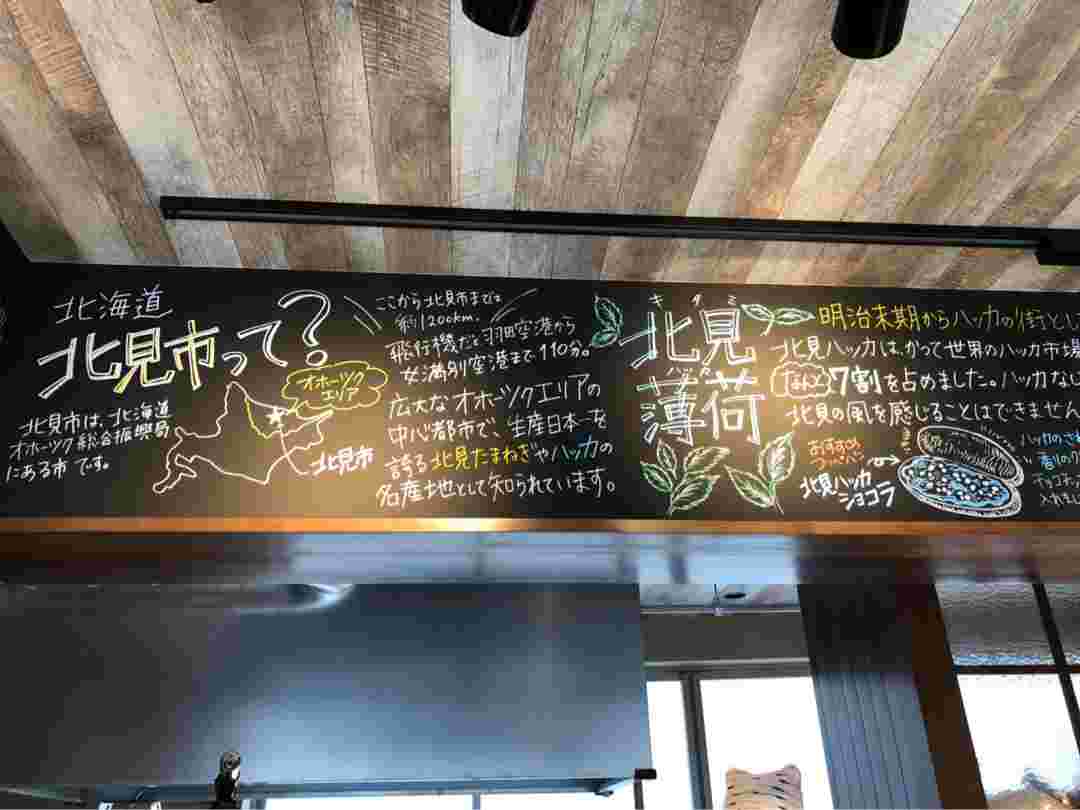 北海道
北見市って?
北見市は、北海道
オホーツク総合振興局
にある市です。
オホーツク
エリア
北見市
ここから北見市までは
約1200km.
飛行機だと羽田空港から
女満別空港まで110分。
広大なオホーツクエリアの
中心都市で、生産日本一を
誇る北見たまねぎやハッカの
名産地として知られています。
キタミ
北見
ハッカ
薄荷
明治末期からハッカの街とし
北見ハッカは、かつて世界のハッカ市場
なんと7割を占めました。ハッカなし
北見の風を感じることはできません
おすすめ
北見ハッカ
ショコラ
ハッカのさ
香りの
チョコ
入れまし